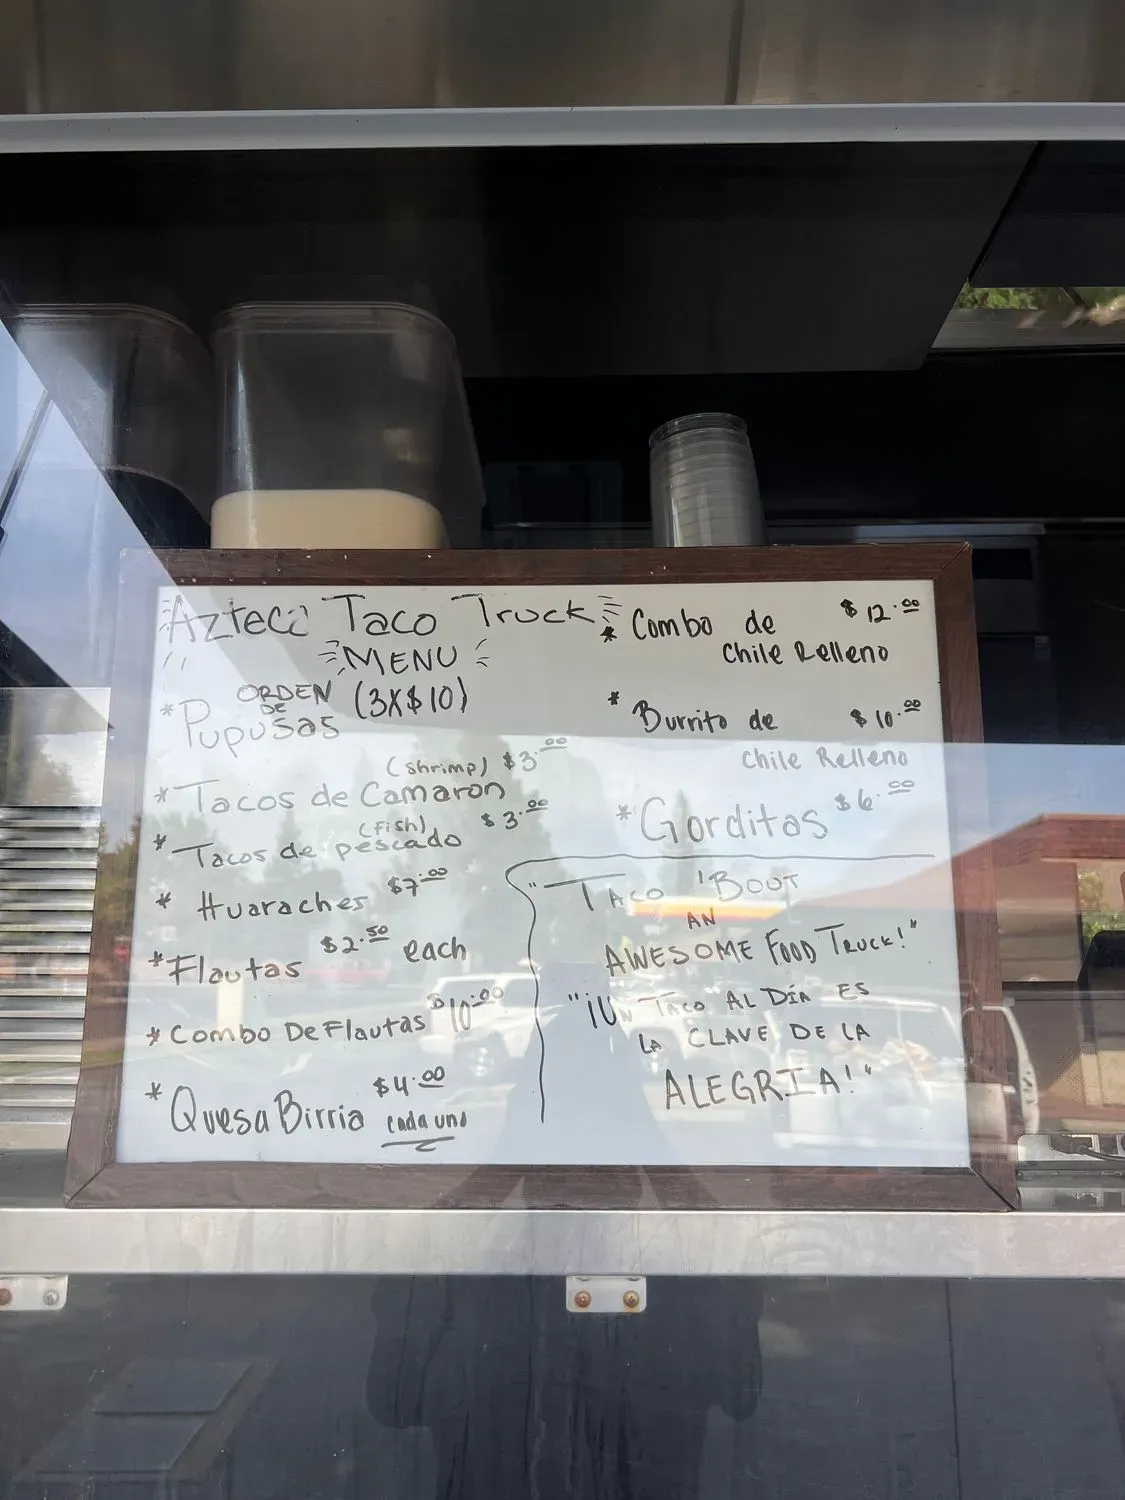 Azteca Taco Truck
MENU
* ORDEN DE Pupusas (3X$10)
* Tacos de Camaron (shrimp) $3.00
* Tacos de pescado (Fish) $3.00
* Huaraches $7.00
* Flautas $2.50 each
* Combo De Flautas $10.00
* QuesaBirria $4.00 cada uno
* Combo de $12.00
Chile Relleno
* Burrito de $10.00
Chile Relleno
* Gorditas $6.00
"Taco 'Bout
AN
AWESOME FOOD TRUCK!"
"¡Un Taco Al Día ES
LA CLAVE DE LA
ALEGRIA!"